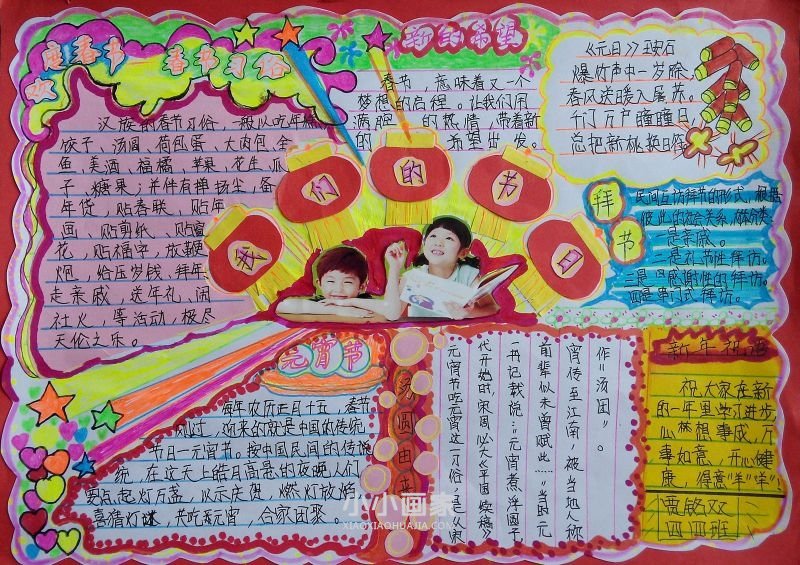 欢度春节
春节习俗
汉族的春节习俗，一般以吃年糕
饺子、汤圆、荷包蛋、大肉包、全
鱼、美酒、福橘、苹果、花生、瓜
子、糖果；并伴有掸扬尘，备
年货，贴春联、贴年
画、贴剪纸、贴窗
花，贴福字，放鞭
炮，给压岁钱，拜年
走亲戚，送年礼、闹
社火，等活动，极尽
天伦之乐。
新的希望
春节，意味着又一个
梦想的启程。让我们用
满腔的热情，带着新
的希望出发。
《元日》王安石
爆竹声中一岁除，
春风送暖入屠苏。
千门万户曈曈日，
总把新桃换旧符
我们的节日
拜节
民间互访拜节的形式，根据
彼此的社会关系，
一是亲戚。
二是礼节性拜访。
三是感谢性的拜访。
四是串门式拜访。
元宵节
每年农历正月十五，春节
刚过，迎来的就是中国的传统
节日—元宵节。按中国民间的传
统，在这天上皓月高悬的夜晚，人们
要点起灯万盏，以示庆贺，燃灯放焰
喜猜灯谜，共吃元宵，合家团聚。
汤圆由来
元宵节吃元宵这一习俗，是从宋
代开始的，宋周必大《平园续稿》
一书记载说：“元宵煮浮圆子，
前辈似未曾赋此……”当时元
宵传至江南，被当地人称
作“汤团”。
新年祝语
祝大家在新
的一年里学习进步，
心想事成，万
事如意，开心健
康，得意“羊”“羊”！
贾铭双
四四班
小小画家
XIAOXIAOHUAJIA.COM